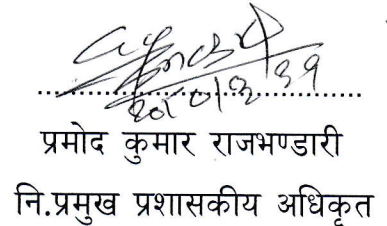 प्रमोद कुमार राजभण्डारी
नि.प्रमुख प्रशासकीय अधिकृत